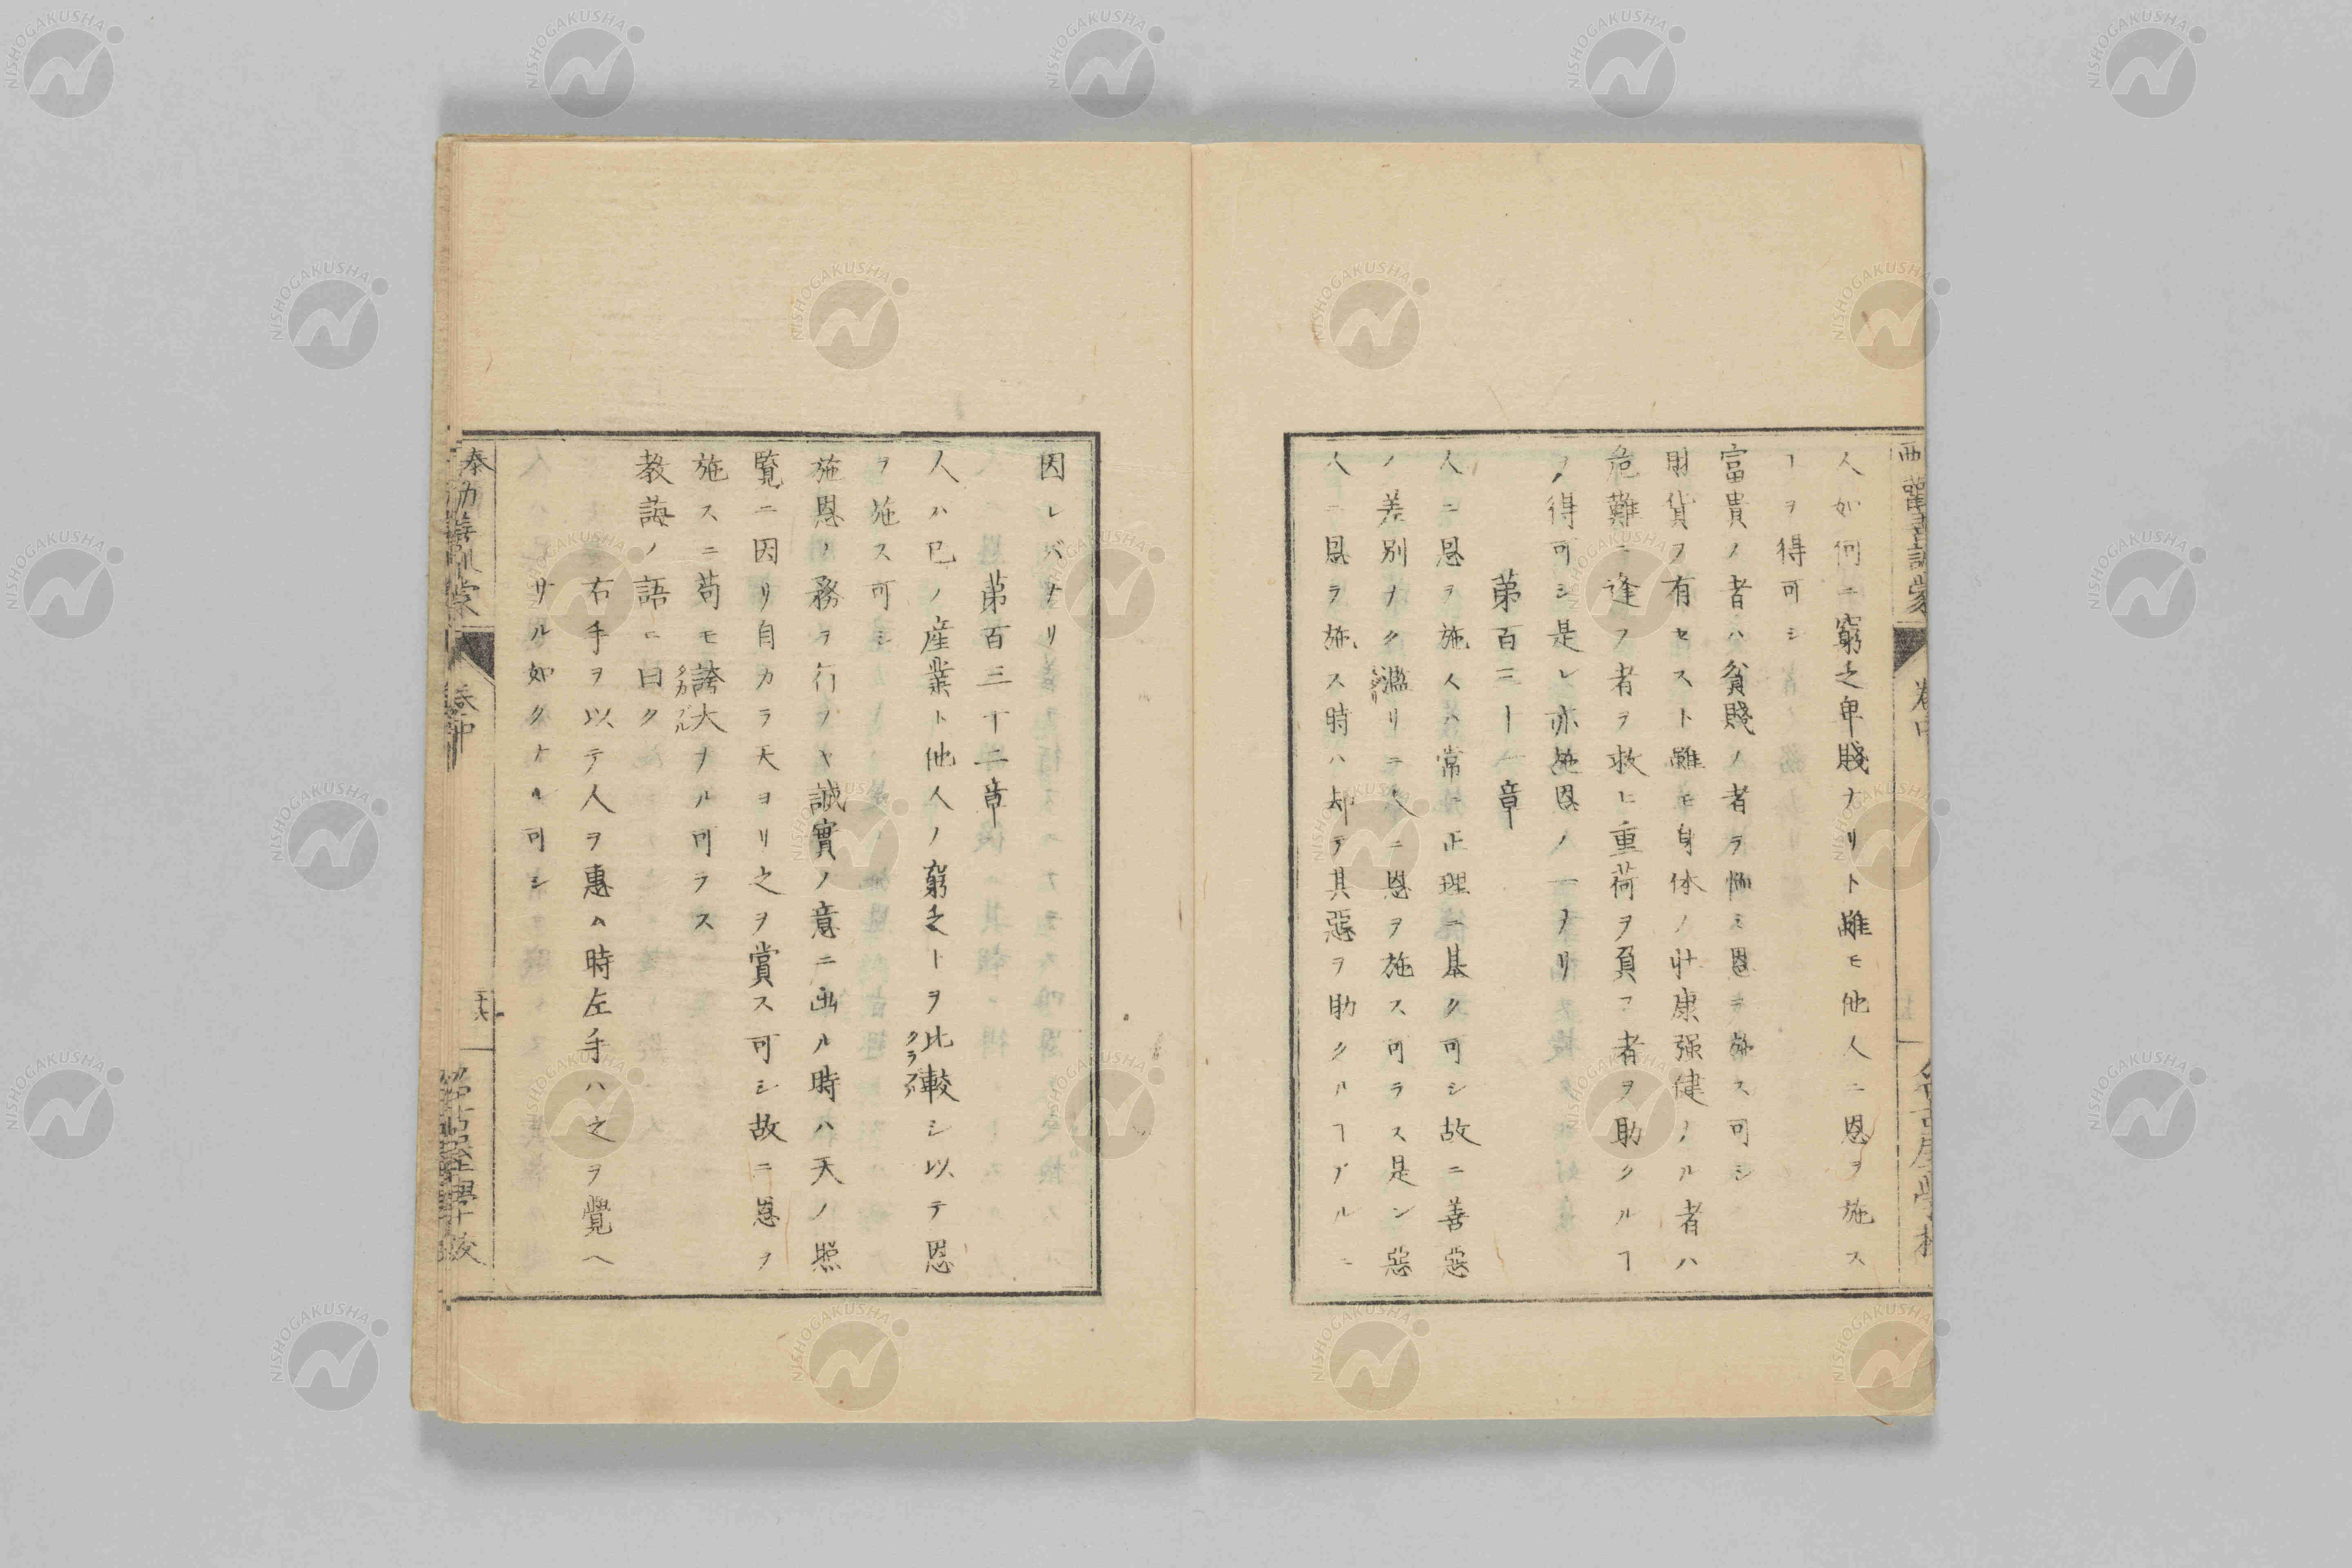 人如何ニ窮乏卑賤ナリト雖モ他人ニ恩ヲ施ス
ヿヲ得可シ
富貴ノ者ハ貧賤ノ者ヲ恤ミ恩ヲ施ス可シ
財貨ヲ有セスト雖モ身体ノ壮康强健ナル者ハ
危難ニ逢フ者ヲ救ヒ重荷ヲ負フ者ヲ助クルヿ
ヲ得可シ是レ亦施恩ノ一ナリ
第百三十一章
人ニ恩ヲ施ス人ハ常ニ正理ニ基ク可シ故ニ善惡
ノ差別ナク濫リニ人ニ恩ヲ施ス可ラス是レ惡
人ニ恩ヲ施ス時ハ却テ其惡ヲ助クルヿアルニ
因レバナリ
第百三十二章
人ハ已ノ産業ト他人ノ窮乏トヲ比較シ以テ恩
クラブ
ヲ施ス可シ
施恩ノ務ヲ行フヤ誠實ノ意ニ出ル時ハ天ノ照
覧ニ因リ自カラ天ヨリ之ヲ賞ス可シ故ニ恩ヲ
施スニ苟モ誇大ナル可ラス
タカブル
教誨ノ語ニ曰ク
右手ヲ以テ人ヲ惠ム時左手ハ之ヲ覺ヘ
サル如クナル可シ
泰西勸善訓蒙
卷中
名古屋學校
NISHOGAKUSHA